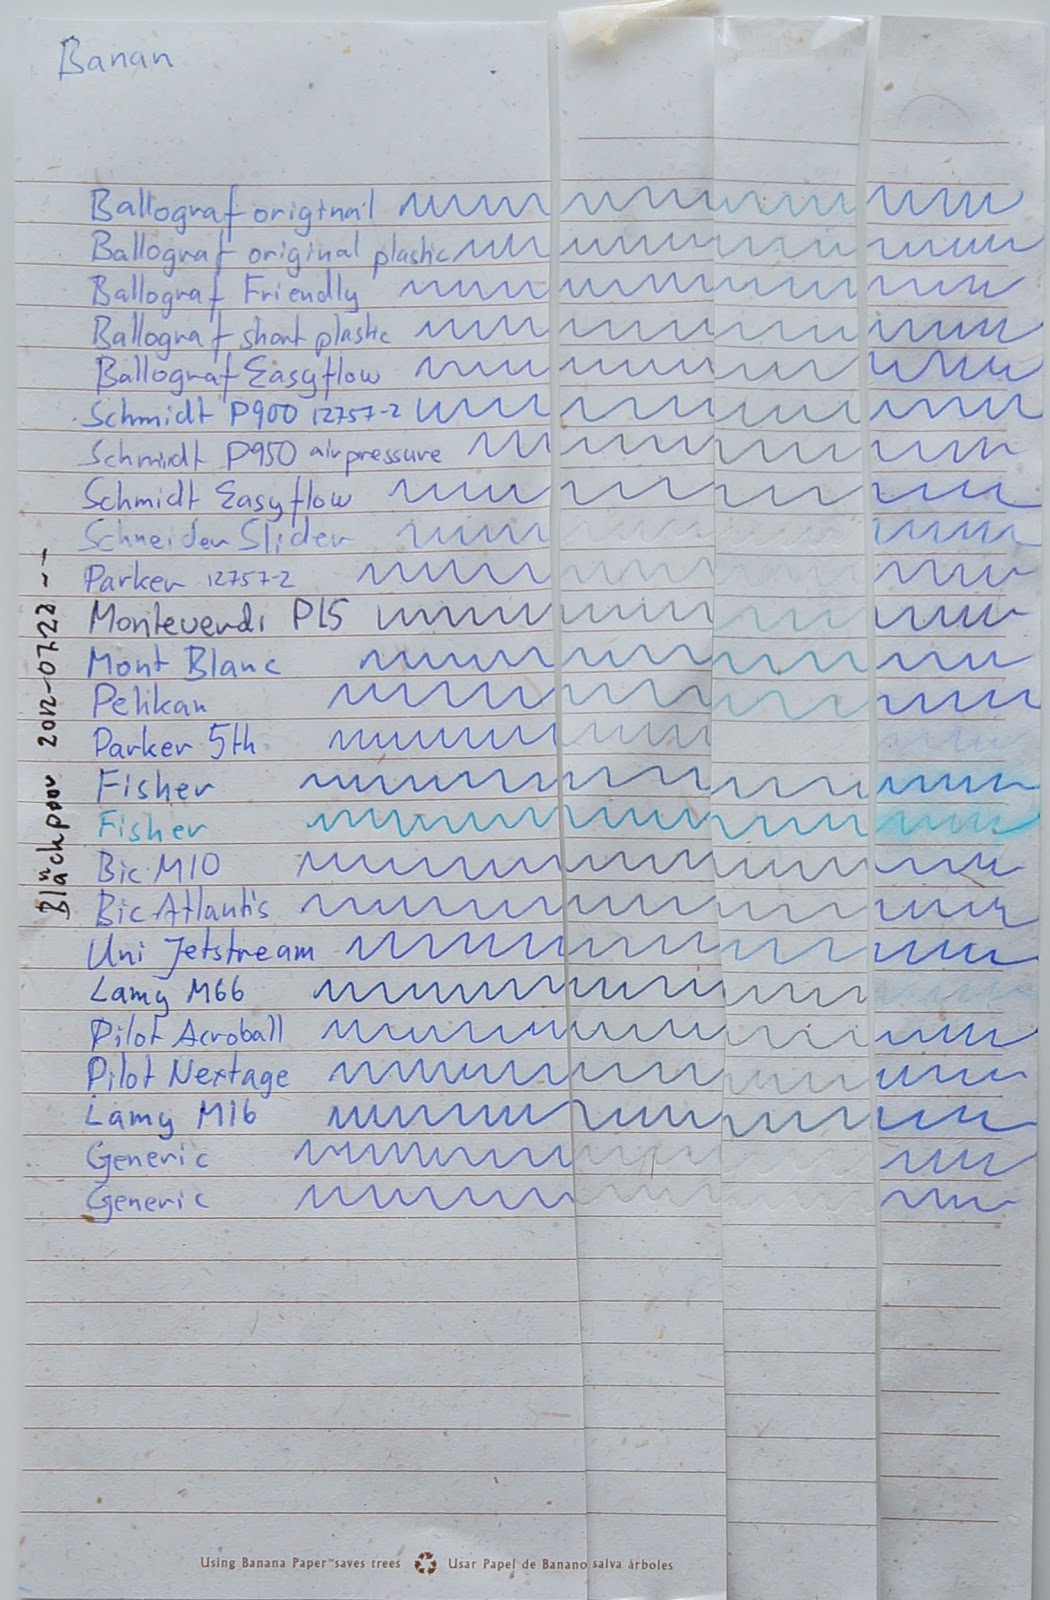 Banan
Ballograf original
Ballograf original plastic
Ballograf Friendly
Ballograf short plastic
Ballograf Easyflow
Schmidt P900 12757-2
Schmidt P950 airpressure
Schmidt Easyflow
Schneider Slider
Parker 12757-2
Monteverdi P15
Mont Blanc
Pelikan
Parker 5th
Fisher
Fisher
Bic M10
Bic Atlantis
Uni Jetstream
Lamy M66
Pilot Acroball
Pilot Nextage
Lamy M16
Generic
Generic
Bläckprov 2012-07-22--
Using Banana Paper™ saves trees Usar Papel de Banano salva árboles